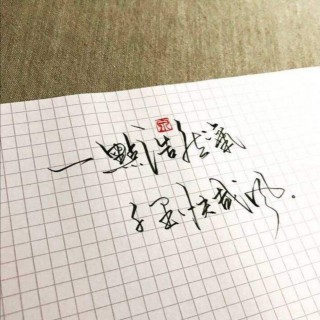 一點浩然氣
千里快哉风.